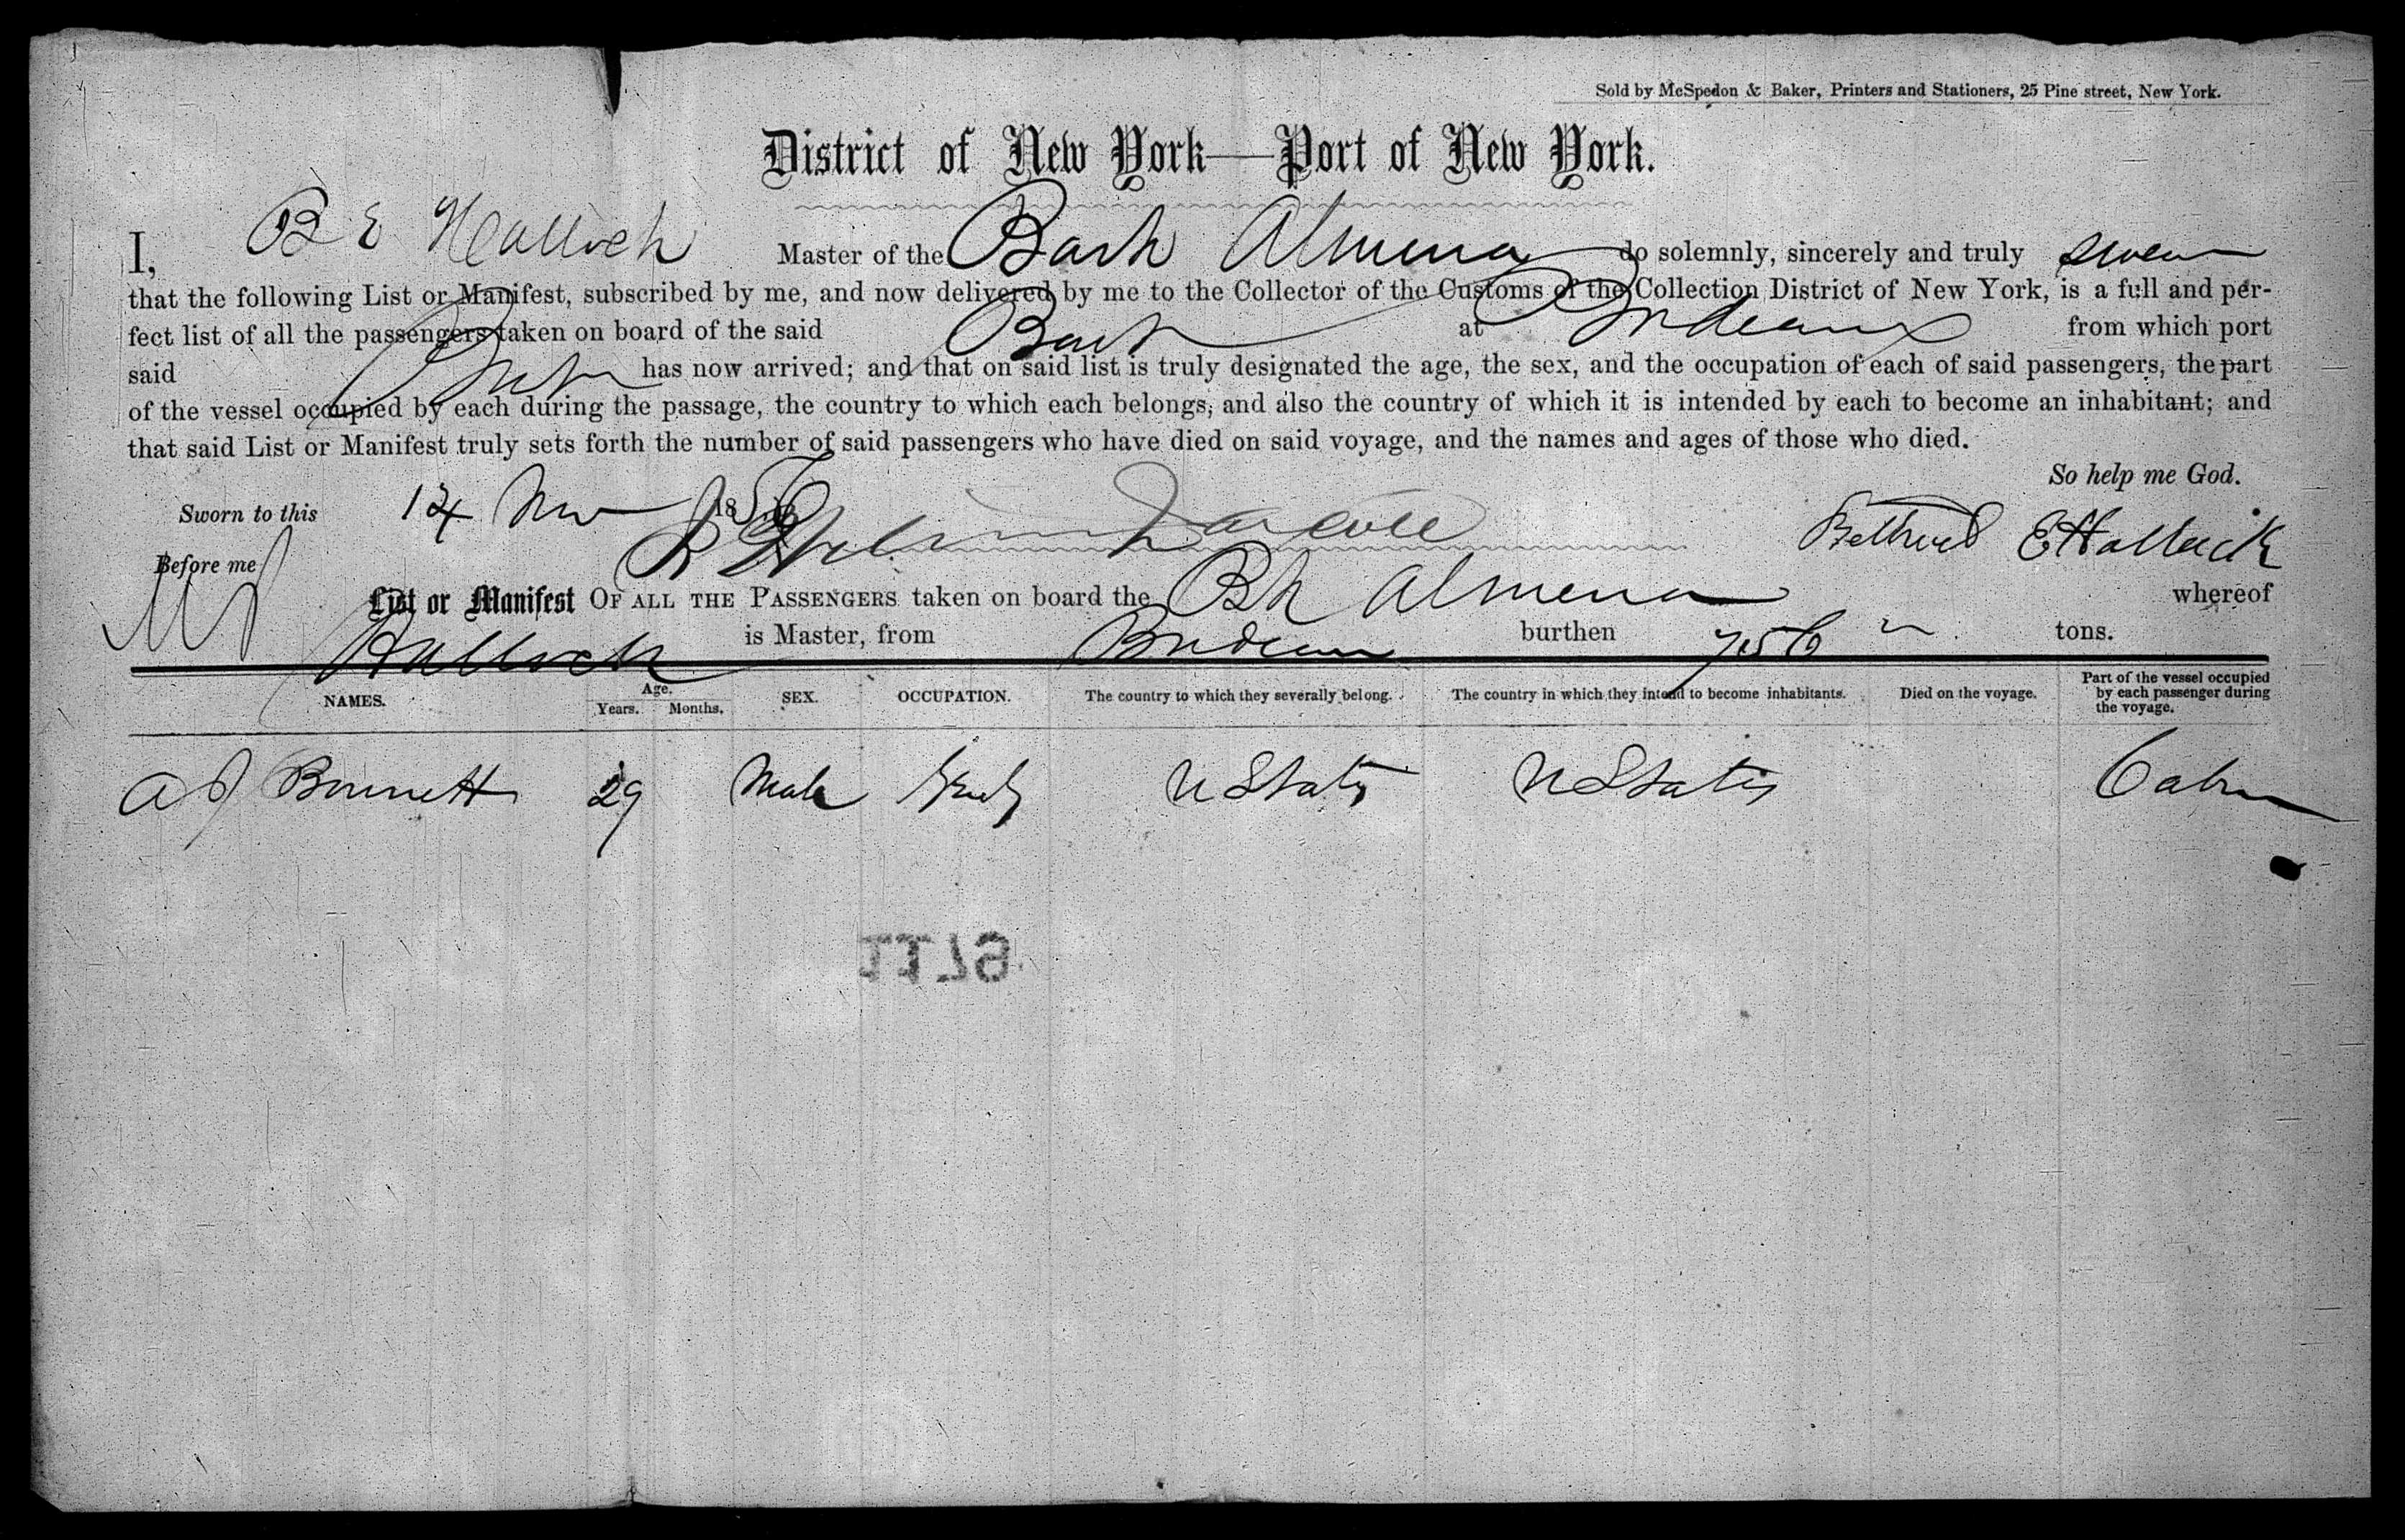 Sold by McSpedon & Baker, Printers and Stationers, 25 Pine street, New York.
District of New York—Port of New York.
I, B E Hallock Master of the Bark Almena do solemnly, sincerely and truly swear
that the following List or Manifest, subscribed by me, and now delivered by me to the Collector of the Customs of the Collection District of New York, is a full and per-
fect list of all the passengers taken on board of the said Bark at Bordeaux from which port
said Bark has now arrived; and that on said list is truly designated the age, the sex, and the occupation of each of said passengers, the part
of the vessel occupied by each during the passage, the country to which each belongs, and also the country of which it is intended by each to become an inhabitant; and
that said List or Manifest truly sets forth the number of said passengers who have died on said voyage, and the names and ages of those who died.
So help me God.
Sworn to this 14 Nov 1856
Before me E Hallock
List or Manifest OF ALL THE PASSENGERS taken on board the Bk Almena whereof
Hallock is Master, from Bordeaux burthen tons.
NAMES. Age. Years. Months. SEX. OCCUPATION. The country to which they severally belong. The country in which they intend to become inhabitants. Died on the voyage. Part of the vessel occupied by each passenger during the voyage.
A J Bennett 29 Male U States U States Cabin
1179